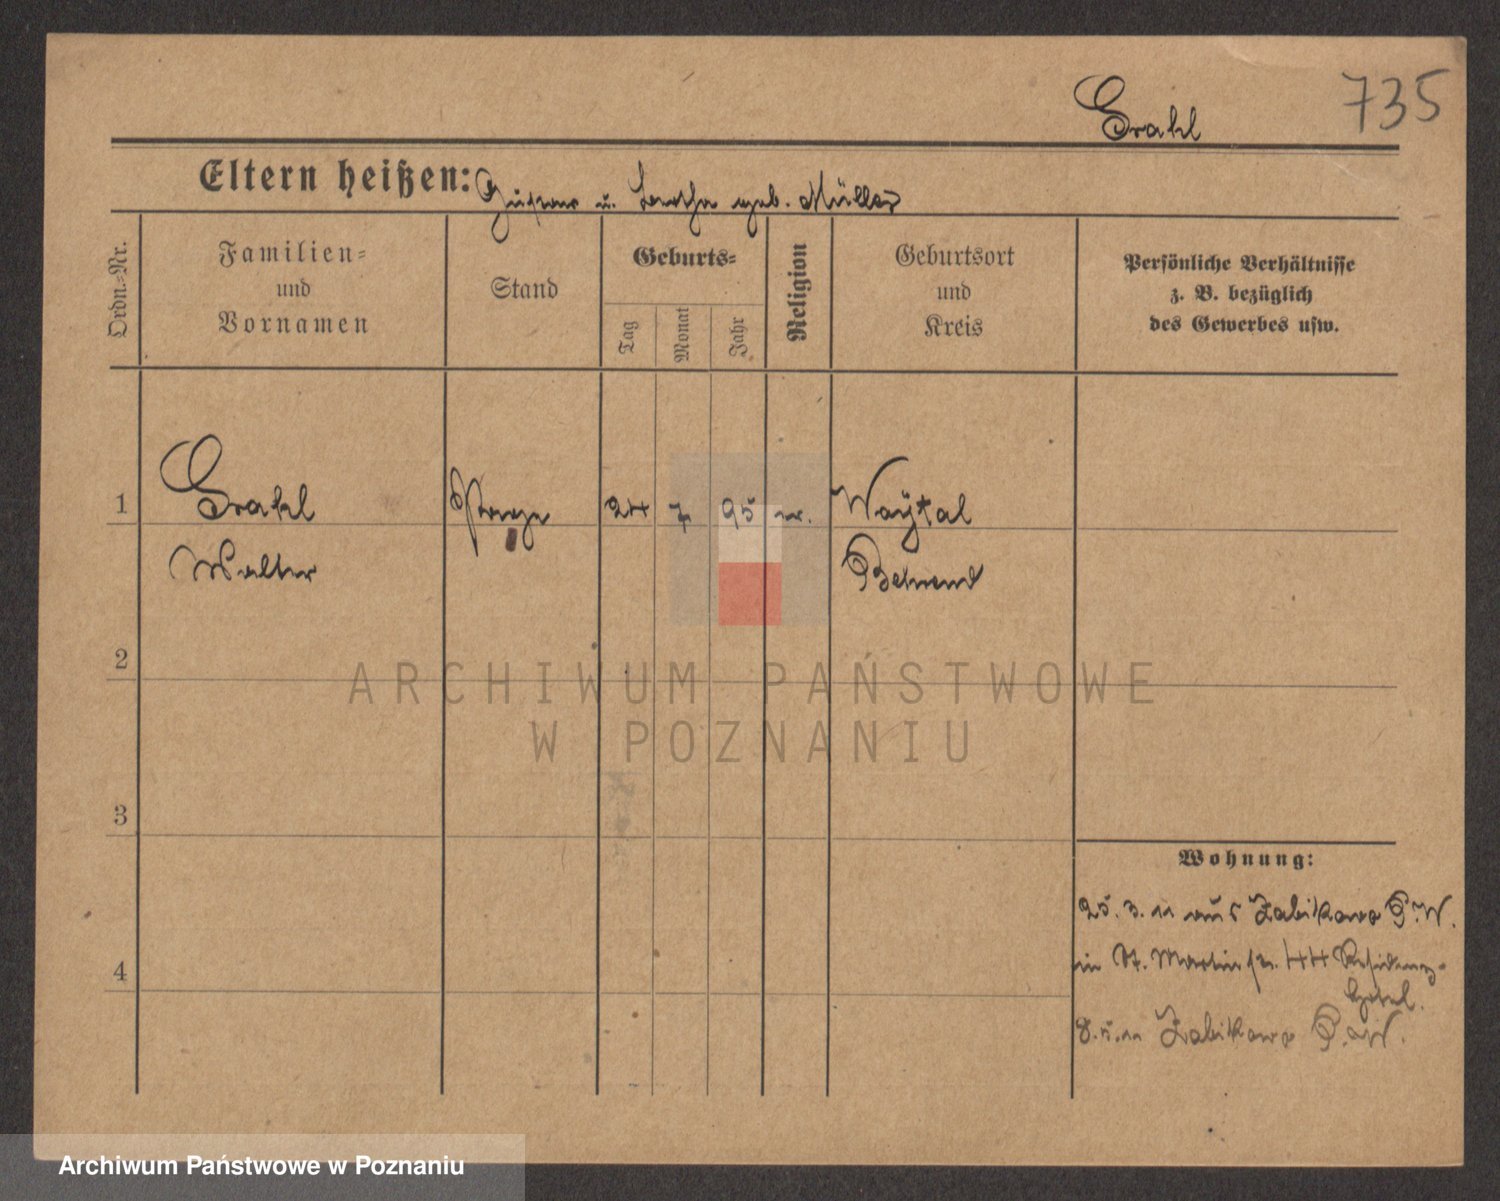 735
Grahl
Eltern heißen: Gustav u. Bertha geb. Müller
Ordn.-Nr.
Familien-
und
Vornamen
Stand
Geburts-
Tag
Monat
Jahr
Religion
Geburtsort
und
Kreis
Persönliche Verhältnisse
z. B. bezüglich
des Gewerbes usw.
1
Grahl
24 7 95
Walter
2
ARCHIWUM PAŃSTWOWE
W POZNANIU
3
4
Wohnung:
25.3.11 aus Zabikowo P.W.
in St. Martinstr. 44 Residenz-
hotel.
8.5.11 Zabikowo P.W.
Archiwum Państwowe w Poznaniu